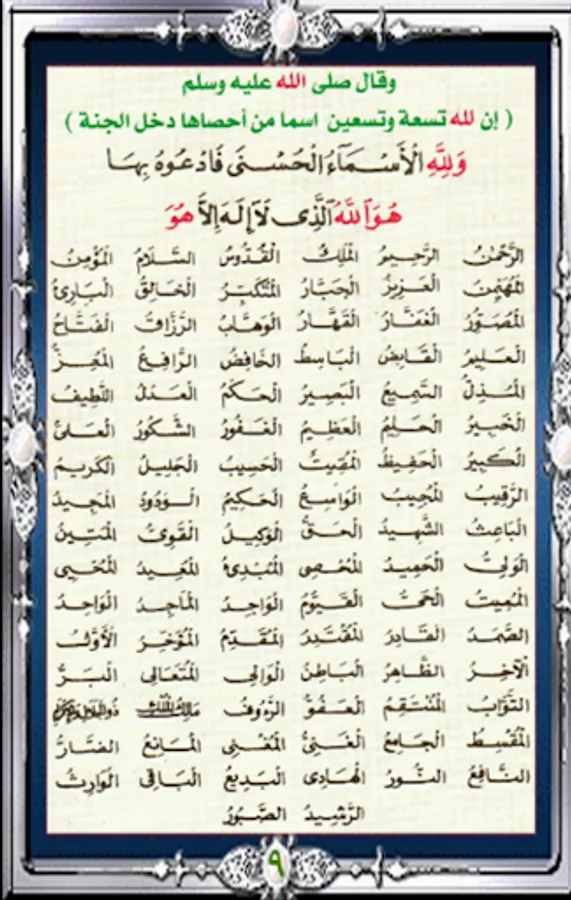 وقال صلى الله عليه وسلم
( إن لله تسعة وتسعين اسما من أحصاها دخل الجنة )
وَلِلَّهِ الْأَسْمَآءُ الْحُسْنَى فَادْعُوهُ بِهَا
هُوَ اللَّهُ الَّذِى لَآ إِلَهَ إِلَّا هُوَ
الرَّحْمٰنُ الرَّحِيمُ الْمَلِكُ الْقُدُّوسُ السَّلَامُ الْمُؤْمِنُ
الْمُهَيْمِنُ الْعَزِيزُ الْجَبَّارُ الْمُتَكَبِّرُ الْخَالِقُ الْبَارِئُ
الْمُصَوِّرُ الْغَفَّارُ الْقَهَّارُ الْوَهَّابُ الرَّزَّاقُ الْفَتَّاحُ
الْعَلِيمُ الْقَابِضُ الْبَاسِطُ الْخَافِضُ الرَّافِعُ الْمُعِزُّ
الْمُذِلُّ السَّمِيعُ الْبَصِيرُ الْحَكَمُ الْعَدْلُ اللَّطِيفُ
الْخَبِيرُ الْحَلِيمُ الْعَظِيمُ الْغَفُورُ الشَّكُورُ الْعَلِىُّ
الْكَبِيرُ الْحَفِيظُ الْمُقِيتُ الْحَسِيبُ الْجَلِيلُ الْكَرِيمُ
الرَّقِيبُ الْمُجِيبُ الْوَاسِعُ الْحَكِيمُ الْوَدُودُ الْمَجِيدُ
الْبَاعِثُ الشَّهِيدُ الْحَقُّ الْوَكِيلُ الْقَوِىُّ الْمَتِينُ
الْوَلِىُّ الْحَمِيدُ الْمُحْصِى الْمُبْدِئُ الْمُعِيدُ الْمُحْيِى
الْمُمِيتُ الْحَىُّ الْقَيُّومُ الْوَاجِدُ الْمَاجِدُ الْوَاحِدُ
الصَّمَدُ الْقَادِرُ الْمُقْتَدِرُ الْمُقَدِّمُ الْمُؤَخِّرُ الْأَوَّلُ
الْآخِرُ الظَّاهِرُ الْبَاطِنُ الْوَالِى الْمُتَعَالِى الْبَرُّ
التَّوَّابُ الْمُنْتَقِمُ الْعَفُوُّ الرَّءُوفُ مَالِكُ الْمُلْكِ ذُو الْجَلَالِ وَالْإِكْرَامِ
الْمُقْسِطُ الْجَامِعُ الْغَنِىُّ الْمُغْنِى الْمَانِعُ الضَّارُّ
النَّافِعُ النُّورُ الْهَادِى الْبَدِيعُ الْبَاقِى الْوَارِثُ
الرَّشِيدُ الصَّبُورُ
٩